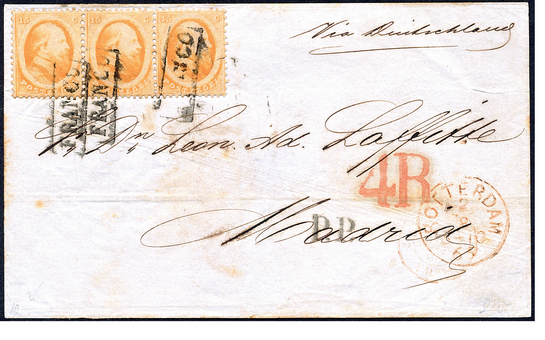 15 C 15 C 15 C
FRANCO
FRANCO
NCO
Via Deutschland
Dr Leon. Ad. Laffitte
4R
Madrid
P.P.
ROTTERDAM